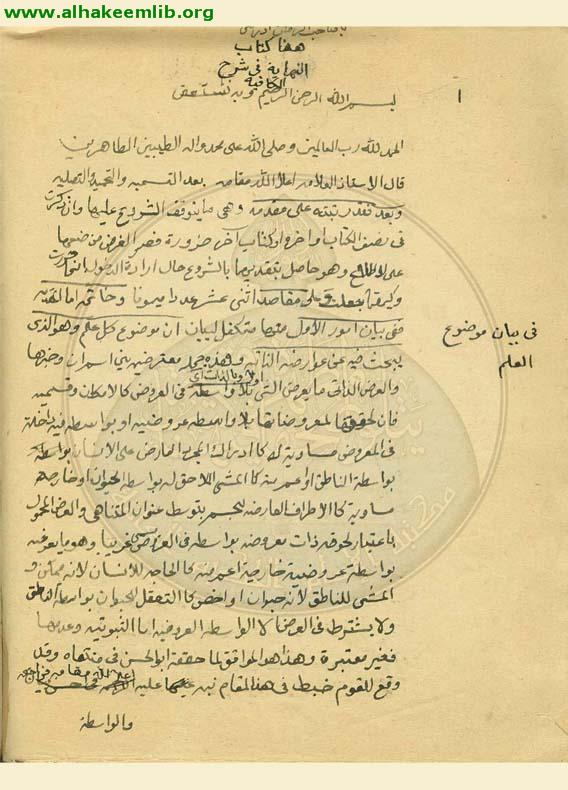 www.alhakeemlib.org
هذا كتاب
النهاية في شرح
الكافية
١
بسم الله الرحمن الرحيم وبه نستعين
الحمد لله رب العالمين وصلى الله على محمد واله الطيبين الطاهرين
قال الاستاذ العلامه اعلا الله مقامه بعد التسميه والتحميد والتصليه
وبعد فقد رتبته على مقدمه وهي ما يتوقف الشروع عليها وان ذكرت
في نصف الكتاب او اخره او كتاب اخر ضرورة قصر الغرض من
على الاطلاع وهو حاصل بتقديمها بالشروع حال ارادة الدخول
وكيف جعلت وعلى مقاصد اثنى عشر عددا ميمونا وخاتمه اما المقدمه
ففي بيان امور الاول منها متكفل لبيان ان موضوع كل علم وهو الذي
في بيان موضوع
العلم
يبحث فيه عن عوارضه الذاتيه وهذه جمله معترضه بين اسم ان وخبرها
والعرض الذاتي ما يعرض الشي بلا واسطة في العروض كالامكان وقسيميه
فان لحوقها لمعروضاتها بلا واسطه عروضيه او بواسطه فيه داخلة
في المعروض مساوية له كادراك المجرد العارض على الانسان بواسطة
بواسطة الناطق او اعم منه كالمشي اللاحق له بواسطة الحيوان او خارجه
مساوية كالاطراف العارضه للجسم بتوسط عنوان المتناهي والعرض المحمول
باعتبار لحوقه ذات معروضه بواسطه في العروض غريبا وهو ما يعرضه
بواسطة عروضية خارجية اعم منه كالحاجه للانسان لانه ممكن و
المشي للناطق لانه حيوان او اخص كالتعقل للحيوان بواسطة الناطق
ولا يشترط في العرض الا الواسطه العروضيه اما الثبوتيه وعدمها
فغير معتبرة وهذا هو الموافق لما حققه ابو الحسن في منتهاه وقد
وقع للقوم خبط في هذا المقام نبه عليه
والواسطة